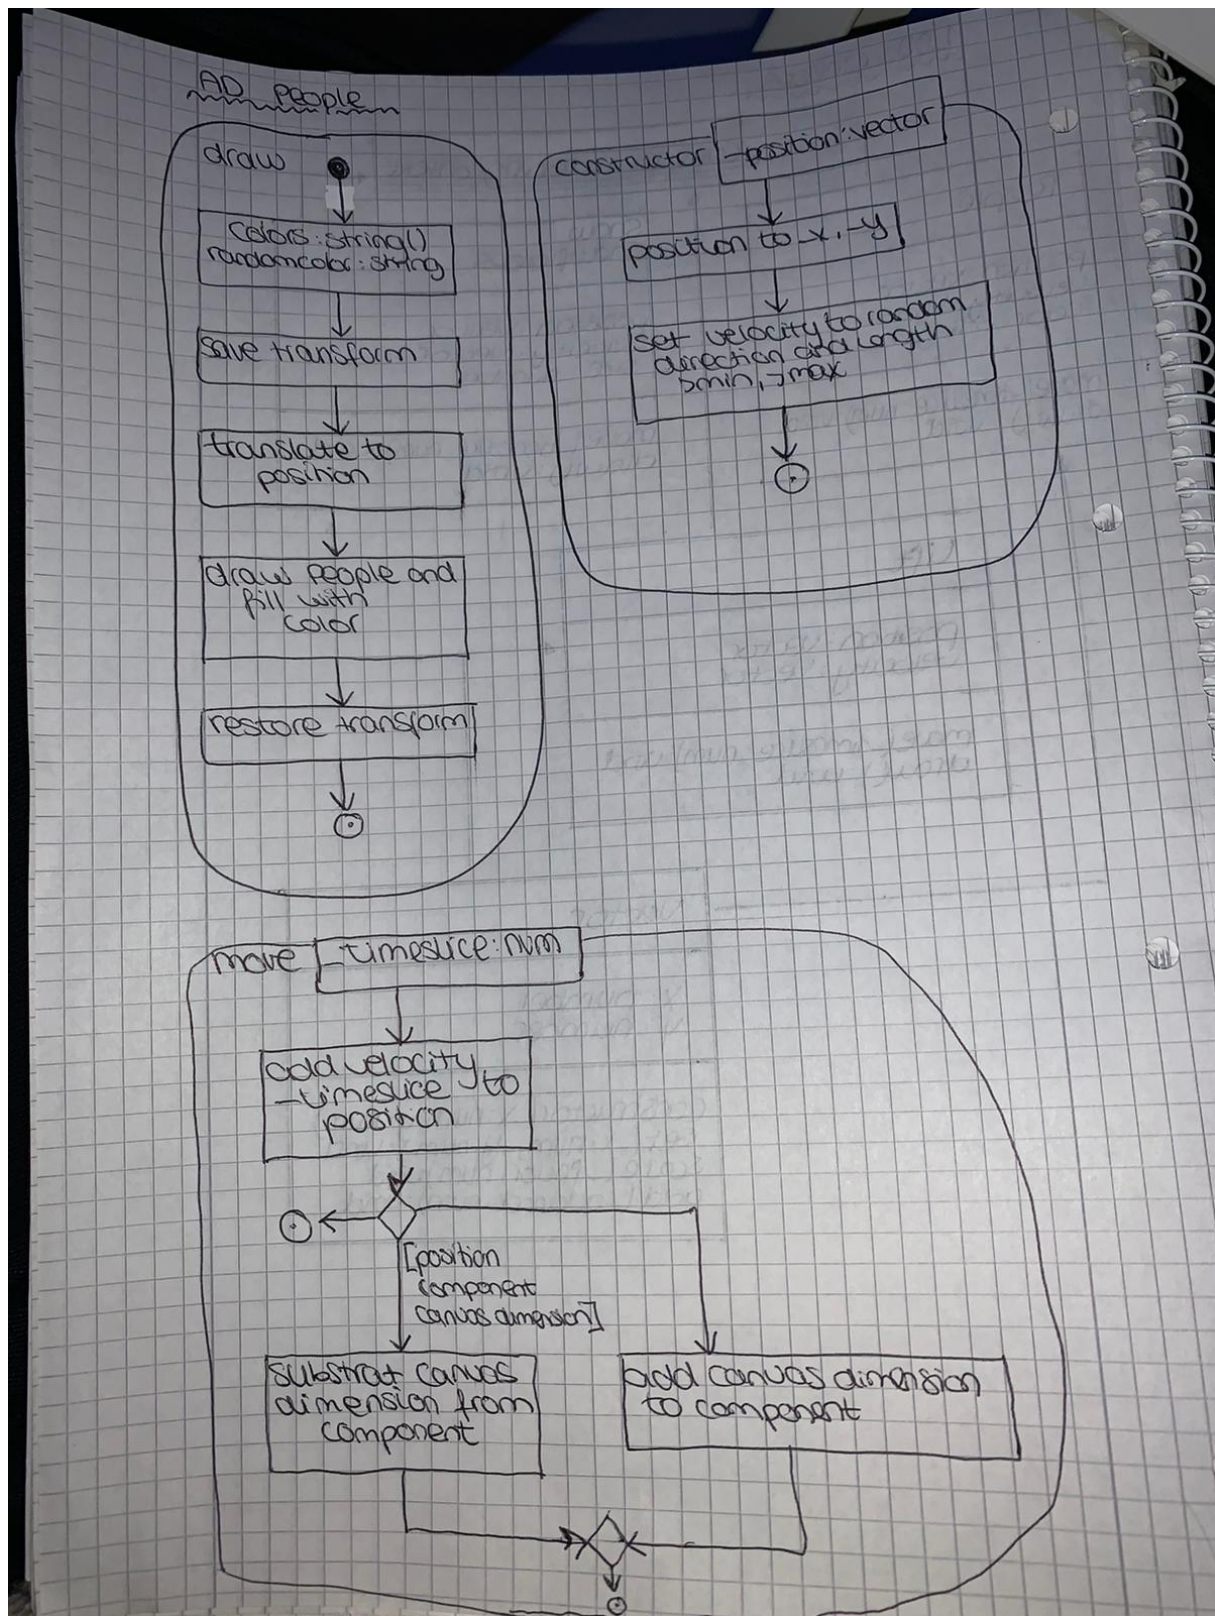 AD People
draw
colors:string()
randomcolor:string
save transform
translate to
position
draw people and
fill with
color
restore transform
constructor
-position:vector
position to -x,-y
set velocity to random
direction and length
>min, >max
move
-timeslice:num
add velocity
-timeslice to
position
[position
component
canvas dimension]
substrat canvas
dimension from
component
add canvas dimension
to component